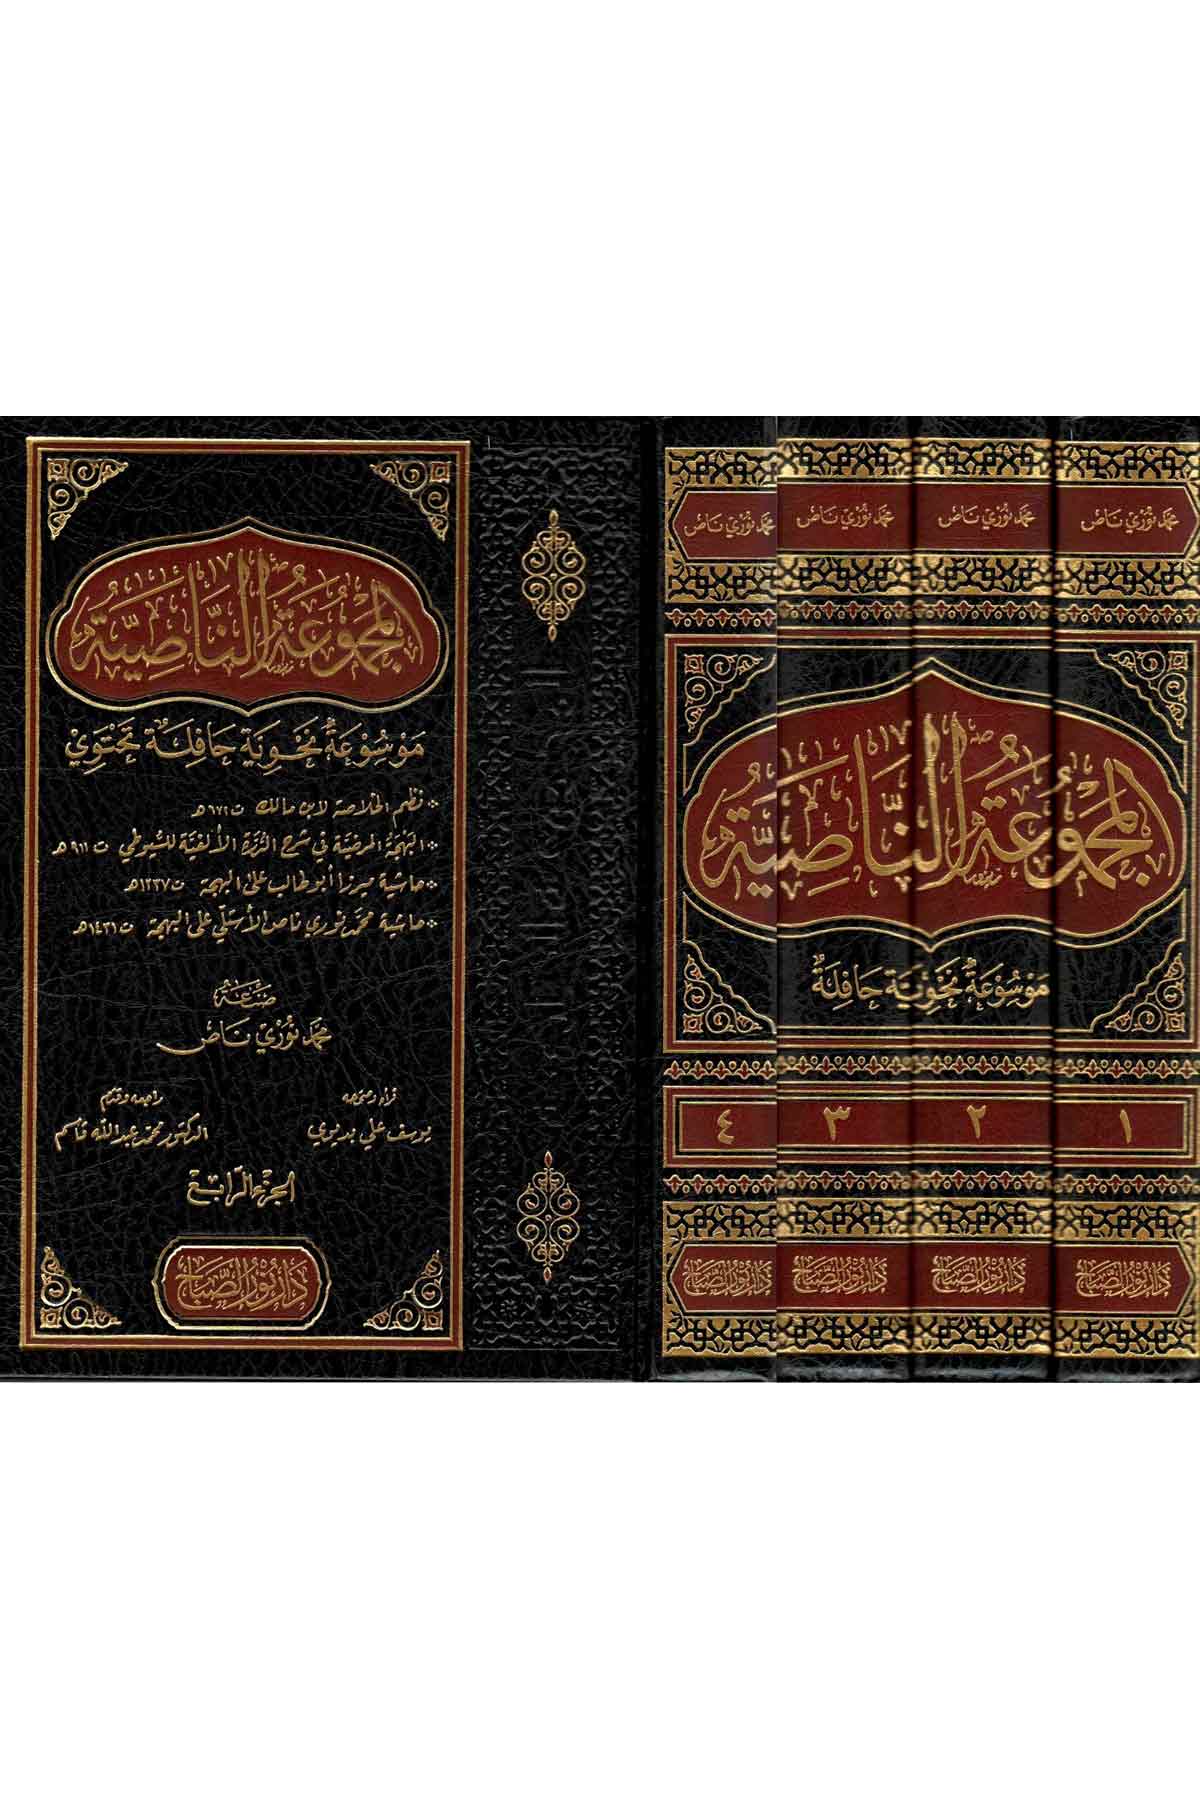 المجموعة الناصية
موسوعة نحوية حافلة تحتوي
* نظم الخلاصة لابن مالك ت ٦٧٢هـ
* البهجة المرضية في شرح الدرة الألفية للسيوطي ت ٩١١هـ
* حاشية ميرزا أبو طالب على البهجة ت ١٢٣٧هـ
* حاشية محمد نوري ناص الأسلي على البهجة ت ١٤٣١هـ
صنعة
محمد نوري ناص
قرأه وصححه
يوسف علي بديوي
راجعه وقدم
الدكتور محمد عبدالله قاسم
الجزء الرابع
دار نور الصباح
محمد نوري ناص
محمد نوري ناص
محمد نوري ناص
محمد نوري ناص
المجموعة الناصية
موسوعة نحوية حافلة
١
٢
٣
٤
دار نور الصباح
دار نور الصباح
دار نور الصباح
دار نور الصباح